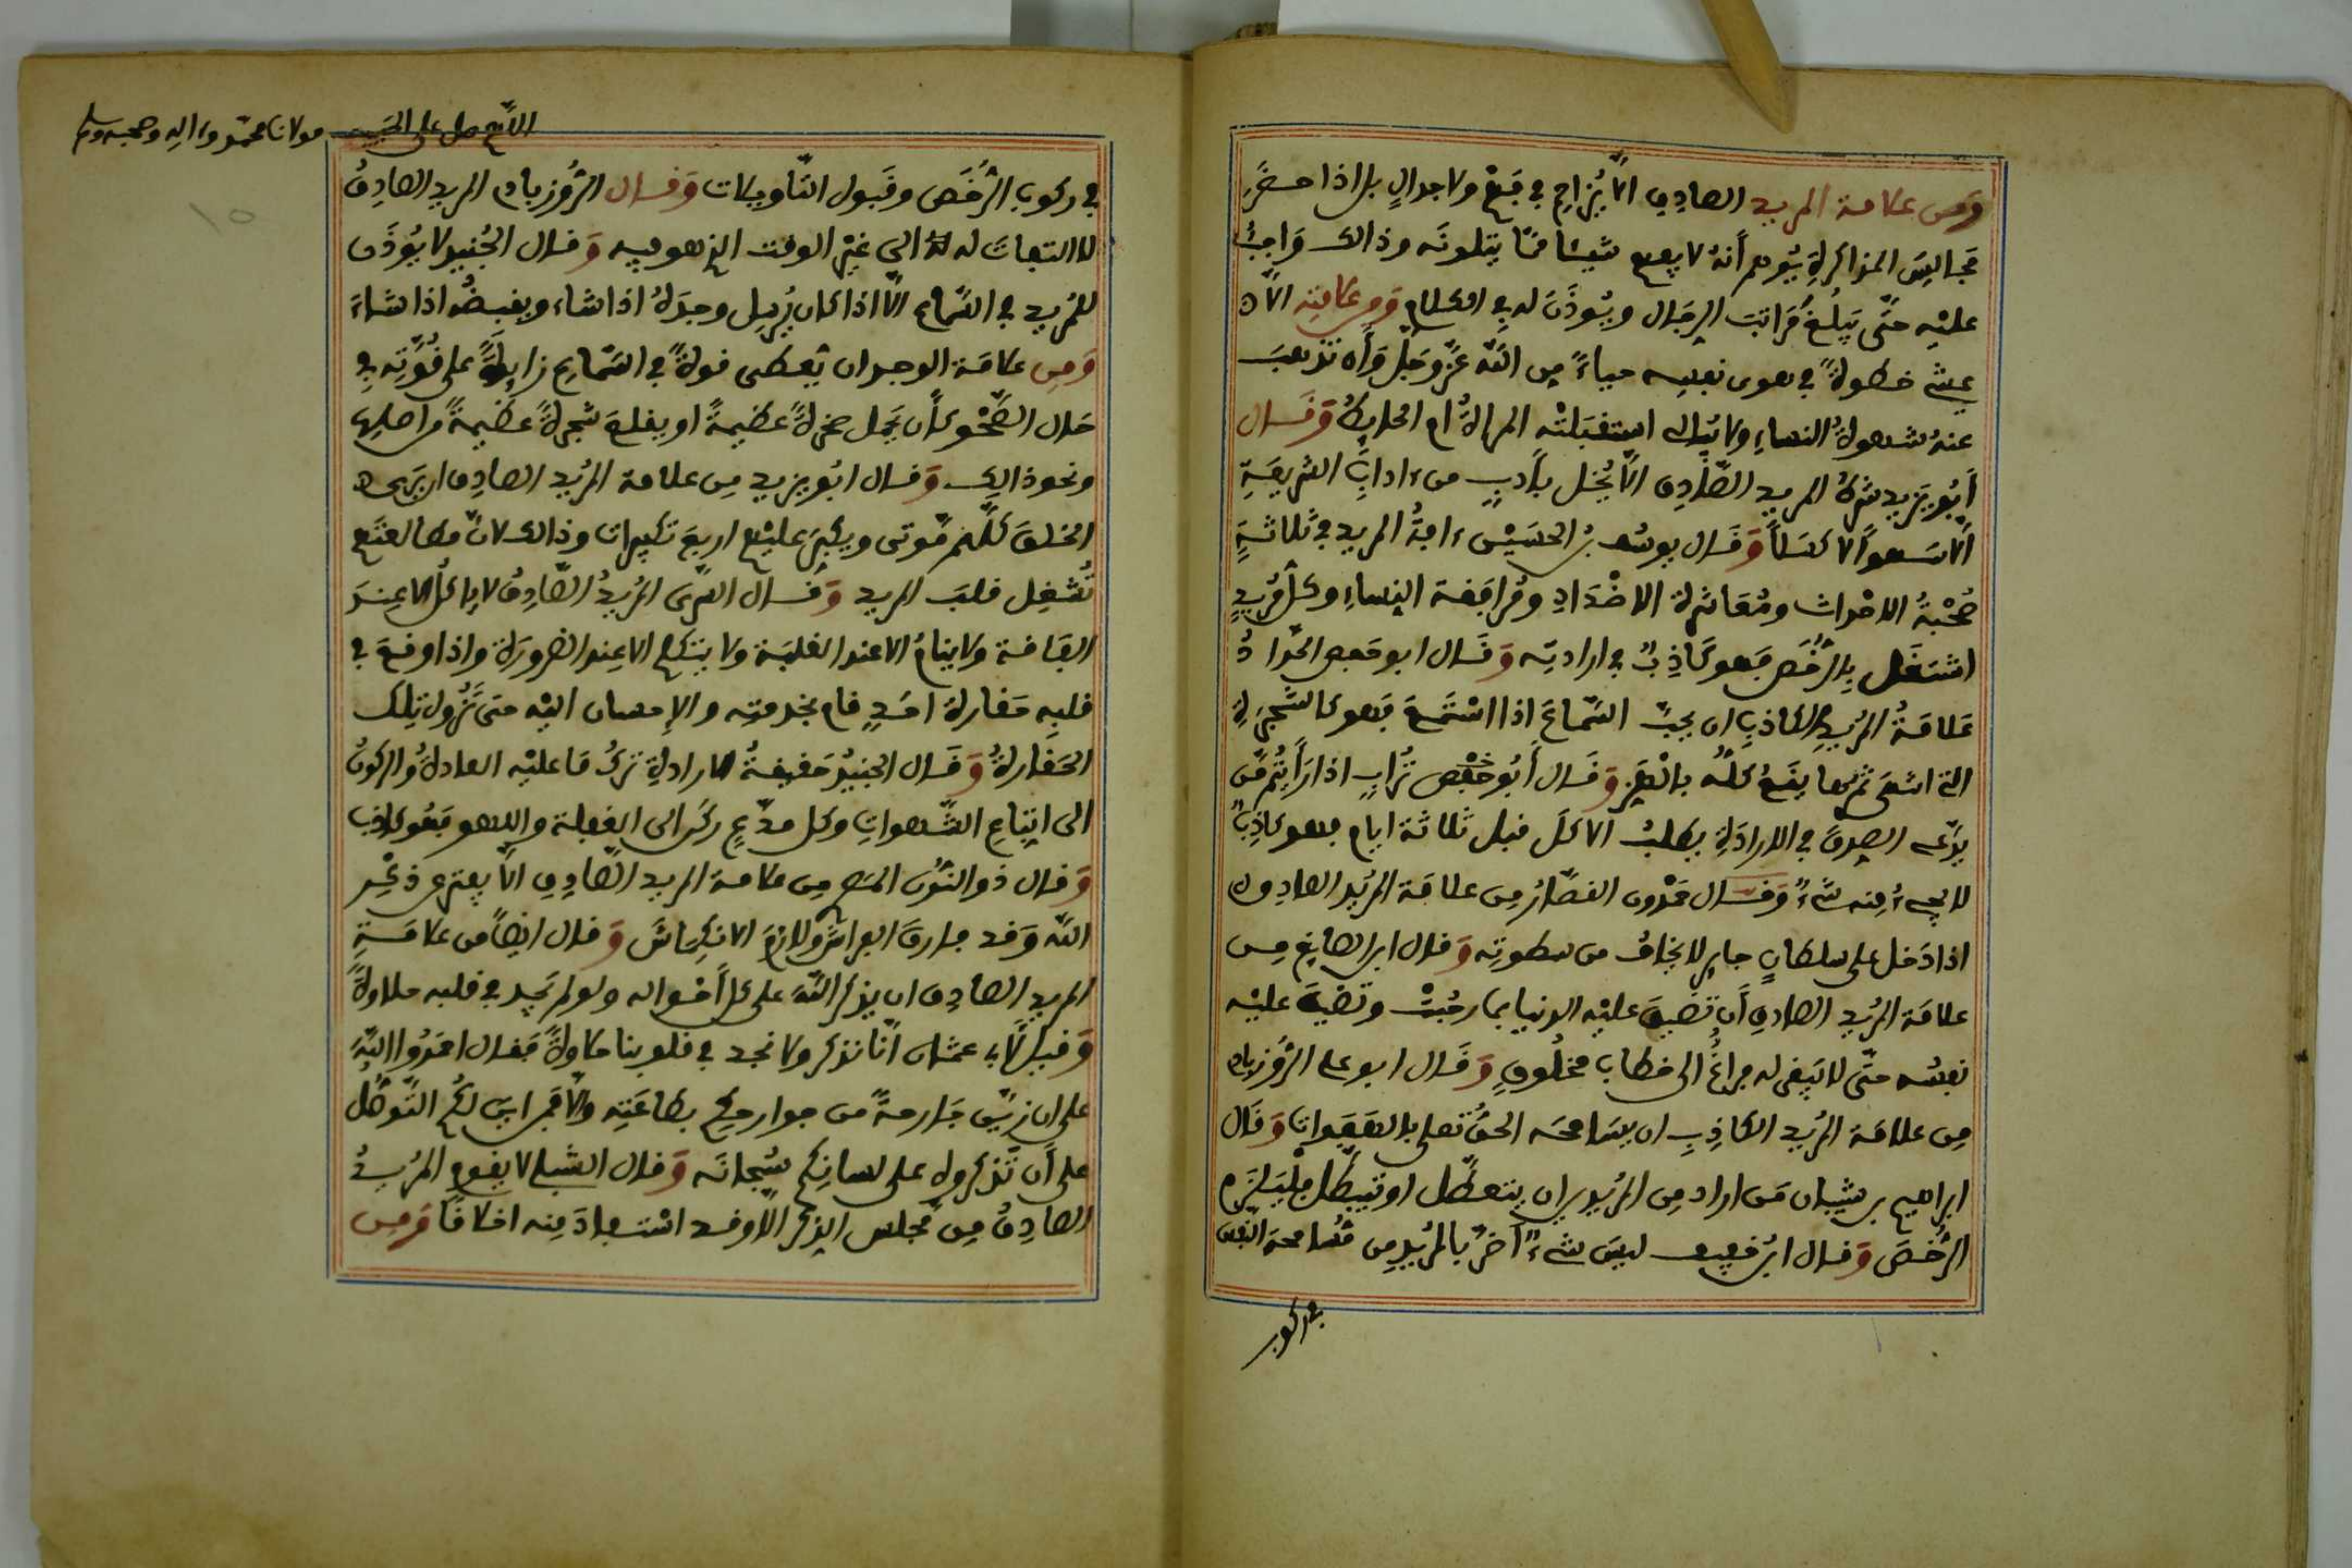 وَمن علامة المريد الصادِق الاَّ يُزاحِم في فَهْمٍ ولا جدالٍ بل اذا حضَر
مجالِسَ المذاكرةِ يُوهم أنهُ لا يفهم شيئا ممّا يتلونَه وذالك وَاجبٌ
عليْه حتَّى يَبلُغ مَراتبَ الرجَال ويُوذَنَ له في الكلام وَمن علامته الاَّ
يمشي خطوةً في هوى نفسِه حياءً مِن اللَّه عزَّ وجَلَّ وَأن تذهبَ
عنهُ شهوةُ النساءِ ولا يُبَالي استقبَلتْه المرأةُ أم الحايطُ وَقَال
أَبُو يَزيد شرطُ المريد الصَّادِق الاَّ يُخِل بأَدبٍ من ءادابِ الشريعَةِ
لاَ سَهواً لا كسَلاً وَقَال يوسُف بنُ الحسَيْن ءافةُ المريد في ثلاثةٍ
صُحْبةُ الاحْداث ومُعَاشرة الاضْدَادِ ومُرافقة النِساءِ وكلُّ مُريدٍ
اشتغَل بِالرُّخَص فهو كاذِبٌ في ارادتِه وَقَال ابو حفص الحدَّادُ
عَلامَةُ المُريدِ الكاذبِ ان يحبَّ السَّماعَ اذا اسْتَمعَ فهو كالشَّجَرة
التي اشقى ثمرها يقَعُ كلُّه بالْهَزِّ وَقَال أبُو حفْص تُرابٍ اذا رَأيتُم مَّن
يدَّعي الصدقَ في الارادَةِ يطلبُ الاكلَ قبل ثلاثة ايام فهو كاذِبٌ
لا يجيءُ مِنه شيءٌ وَقَال حَمْدُون القصَّارُ مِن علامَة المُريد الصادق
اذا دَخل على سلطانٍ جايرٍ لا يَخافُ من سطوتِه وَقال ابن الصايغ مِن
علامَة المُريد الصادق أن تضيقَ عليْه الدنيا بما رحُبتْ وتضيقَ عليْه
نفسُه حتَّى لا يَبقى له فراغٌ الى خطاب مخلُوقٍ وَقَال ابو علي الرُّوذبادي
مِن علامَة المُريد الكاذِبِ ان يسَامحَه الحقُّ تعلى بالهَفَوات وَقَال
ابراهيم بن شيبان مَن اراد مِن المُريدين ان يتعطَّل او يتبطَّل فلْيَلتَزم
الرُّخصَ وَقال ابنُ خفيف ليسَ شيءٌ أَضرُّ بالمُريد مِن مُسامحة النَّفس
في ركوب
اللَّهم صل على الحَبيب مولانا محمَّد وءاله وصحبه وسلم
١٥
في ركوبِ الرُّخَص وقَبول التَّاويلات وَقال الرُّوذبادي المريد الصادِقُ
لا التفات له الى غيْر الوقت الذي هو فيه وَقال الجُنيد لا يُوذَن
للمُريد في السَّماع الاَّ اذا كان يُرسِل وجدَهُ اذا شاء ويقبضُه اذا شاءَ
وَمِن علامَة الوجدان يُعطى قوةً في السَّماعِ زايدةً على قُوَّتِه في
حَال الصَّحْو كأَن يَحمِل صخرةً عظيمةً او يقلعَ شجرةً عظيمةً من اصلِها
ونحو ذالك وَقال ابُو يزيد مِن علامة المُريد الصادِق ان يَرى
الخلقَ كلَّهم مَّوتى ويكبِرَ عليْهم اربعَ تكبيرات وذالك لانَّ مطالعتَهم
تُشغِل قلبَ المريد وَقال السَّرى المُريدُ الصَّادِقُ لا ياكلُ الا عِندَ
الفَاقة ولا ينامُ الا عند الغلبَة ولا يتكلم الا عِند الضرورةِ واذا وقعَ في
قلبِه حَقارةُ احَدٍ قام بخدمتِه والإحسان اليْه حتى تَزُول تِلك
الحَقارةُ وَقَال الجنيْدُ حَقيقةُ الارادةِ تركُ مَا عليْه العادةُ والركونُ
الى اتِباعِ الشَّهواتِ وكل مدَّعٍ ركَن الى الغفلة واللهو فهُو كاذب
وَقال ذو النُّون المصري مِن علامة المريد الصَّادِق الاَّ يفترى ذكْر
اللَّه وَقد فارقَ الفراشَ ولازمَ الانكِمَاشَ وَقال ايضاً من علامَةِ
المريد الصادِق ان يذكر اللَّهَ على كلِّ أحْواله ولو لم يَجِد في قلبه حلاوةً
وَقيل لأَبي عثمان أنَّا نذكر ولا نجد في قلوبنا حلاوةً فقال احمَدُوا اللَّهَ
على ان زيَّن جَارحةً من جوارحكم بطاعَتِه والاَّ فمن اين لكُم التَّوصُّل
على أن تَذكروه على لسانِكم سُبحانَه وَقال الشبلي لا يقوم المُريدُ
الصادِقُ مِن مَجلس الذِكر الاَّ وقد اسْتفادَ مِنه اخلاقاً وَمِن